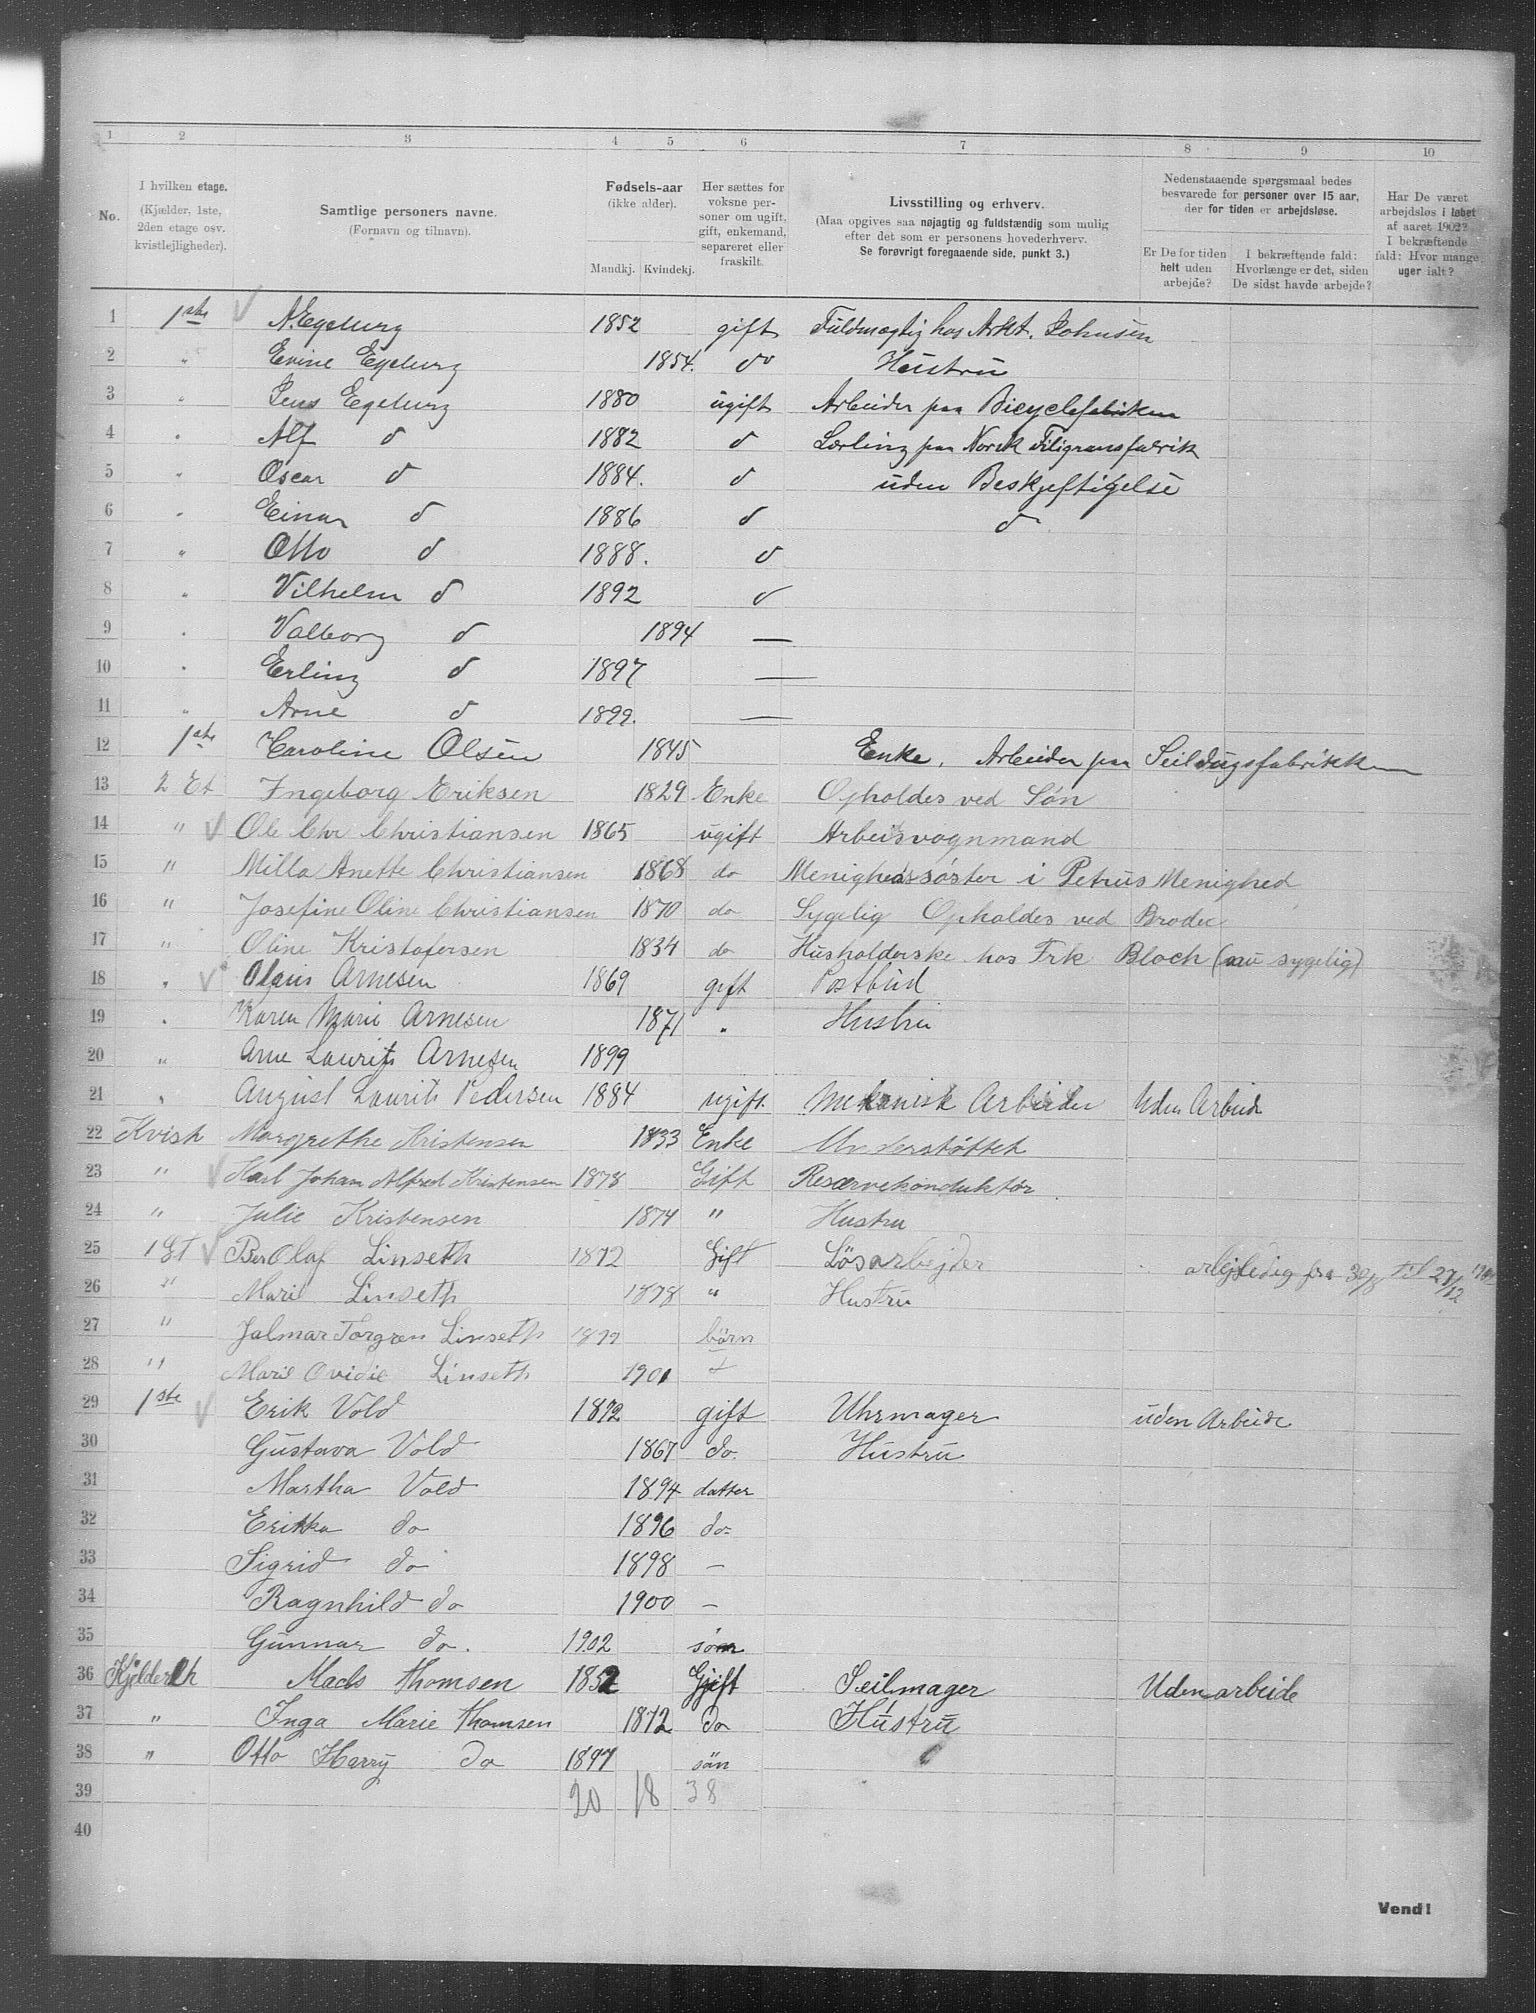 1 2 3 4 5 6 7 8 9 10
No.
I hvilken etage.
(Kjælder, 1ste,
2den etage osv.
kvistlejligheder).
Samtlige personers navne.
(Fornavn og tilnavn).
Fødsels-aar
(ikke alder).
Mandkj. Kvindekj.
Her sættes for
voksne per-
soner om ugift,
gift, enkemand,
separeret eller
fraskilt.
Livsstilling og erhverv.
(Maa opgives saa nøjagtig og fuldstændig som mulig
efter det som er personens hovederhverv.
Se forøvrigt foregaaende side, punkt 3.)
Nedenstaaende spørgsmaal bedes
besvarede for personer over 15 aar,
der for tiden er arbejdsløse.
Er De for tiden
helt uden
arbejde?
I bekræftende fald:
Hvorlænge er det, siden
De sidst havde arbejde?
Har De været
arbejdsløs i løbet
af aaret 1902?
I bekræftende
fald: Hvor mange
uger ialt?
1 1ste A. Egeberg 1852 gift Fuldmægtig hos Arkt. Johnsen
2 " Evine Egeberg 1854. do Hustru
3 " Jens Egeberg 1880 ugift Arbeider paa Bicyclefabriken
4 " Alf d 1882 d Lærling paa Norsk Filigransfabrik
5 " Oscar d 1884. d uden Beskjeftigelse
6 " Einar d 1886 d d
7 " Otto d 1888. d
8 " Vilhelm d 1892 d
9 " Valborg d 1894 —
10 " Erling d 1897 —
11 " Arne d 1899. —
12 1ste Caroline Olsen 1845 Enke. Arbeider paa Seildugsfabrikken
13 2 Et Ingeborg Eriksen 1829 Enke Opholdes ved Søn
14 " Ole Chr Christiansen 1865 ugift Arbeisvognmand
15 " Milla Anette Christiansen 1868 do Menighedssøster i Petrus Menighed
16 " Josefine Oline Christiansen 1870 do Sygelig Opholdes ved Broder
17 " Oline Kristofersen 1834 do Husholderske hos Frk Bloch (nu sygelig)
18 " Olaus Arnesen 1869 gift Postbud
19 " Karen Marie Arnesen 1871 " Hustru
20 " Arne Laurits Arnesen 1899
21 " August Laurits Pedersen 1884 ugift. Mekanisk Arbeider Uden Arbeide
22 Kvist Margrethe Kristensen 1833 Enke Understøttet
23 " Karl Johan Alfred Kristensen 1878 Gift Reservekonduktør
24 " Julie Kristensen 1874 " Hustru
25 1 Et Per Olaf Linseth 1872 Gift Løsarbejder arbejledig fra 30/8 til 27/12
26 " Marie Linseth 1878 " Hustru
27 " Jalmar Torgren Linseth børn
28 " Marie Ovidie Linseth 1901
29 1ste Erik Vold 1872 gift Uhrmager uden Arbeide
30 Gustava Vold 1867 do. Hustru
31 Martha Vold 1894 datter
32 Erikka do 1896 do-
33 Sigrid do 1898 —
34 Ragnhild do 1900 —
35 Gunnar do. 1902 søn
36 Kjelderen Mads Thomsen 1852 Gift Seilmager Uden arbeide
37 " Inga Marie Thomsen 1872 do Hustru
38 " Otto Harry do 1897 søn
39 20 18 38
40
Vend!